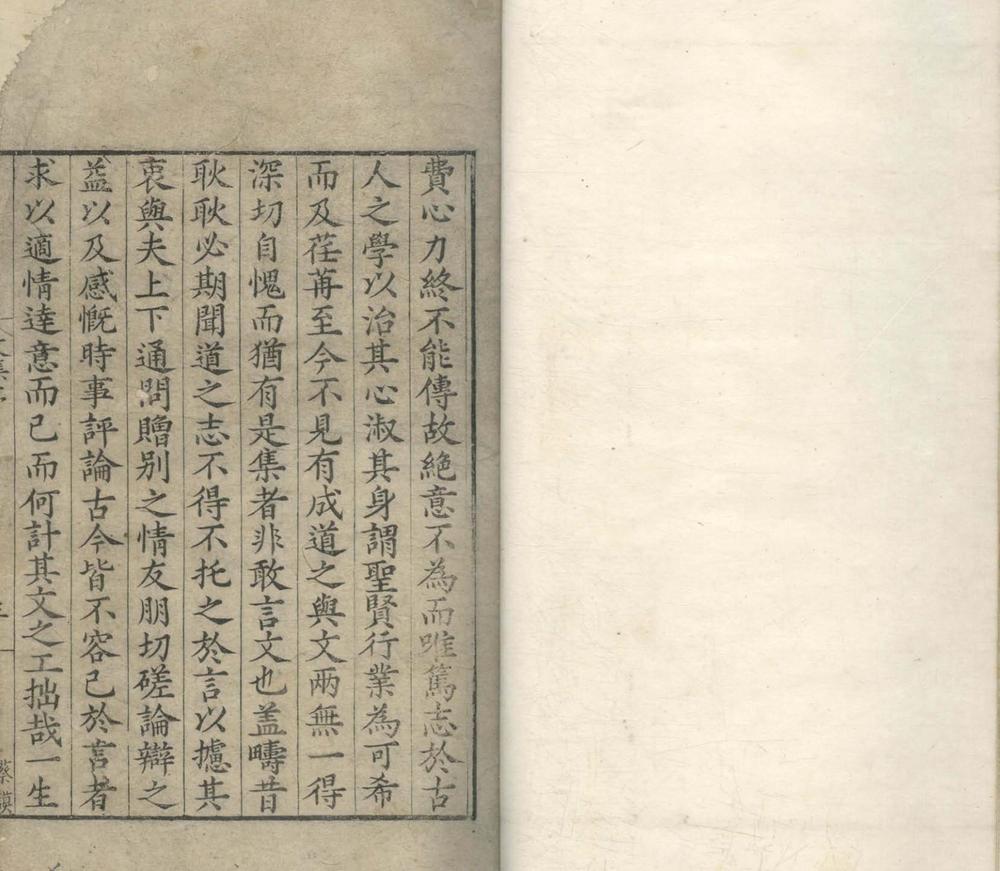 費心力終不能傳故絶意不為而唯篤志於古
人之學以治其心淑其身謂聖賢行業為可希
而及荏苒至今不見有成道之與文兩無一得
深切自愧而猶有是集者非敢言文也盖疇昔
耿耿必期聞道之志不得不托之於言以攄其
衷與夫上下通問贈别之情友朋切磋論辯之
益以及感慨時事評論古今皆不容已於言者
求以適情達意而已而何計其文之工拙哉一生